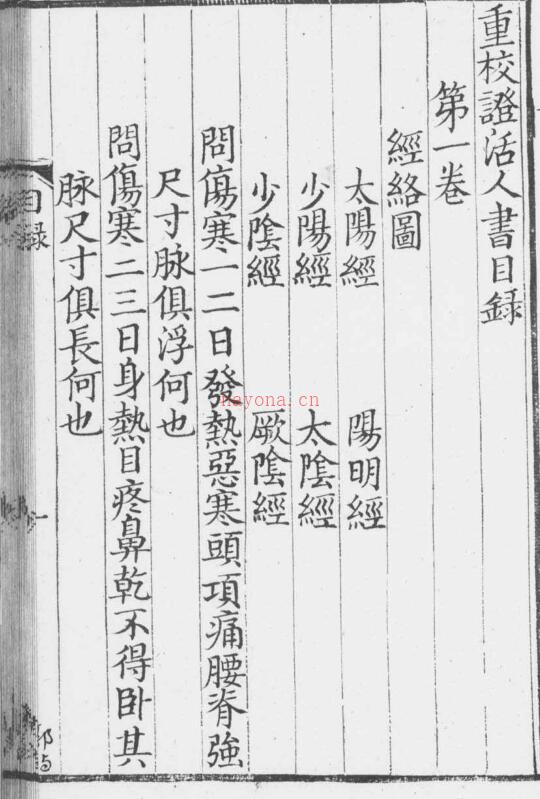 重校證活人書目録
第一卷
經絡圖
太陽經 陽明經
少陽經 太陰經
少陰經 厥陰經
問傷寒一二日發熱惡寒頭項痛腰脊強
尺寸脉俱浮何也
問傷寒二三日身熱目疼鼻乾不得卧其
脉尺寸俱長何也
目録
nayona.cn